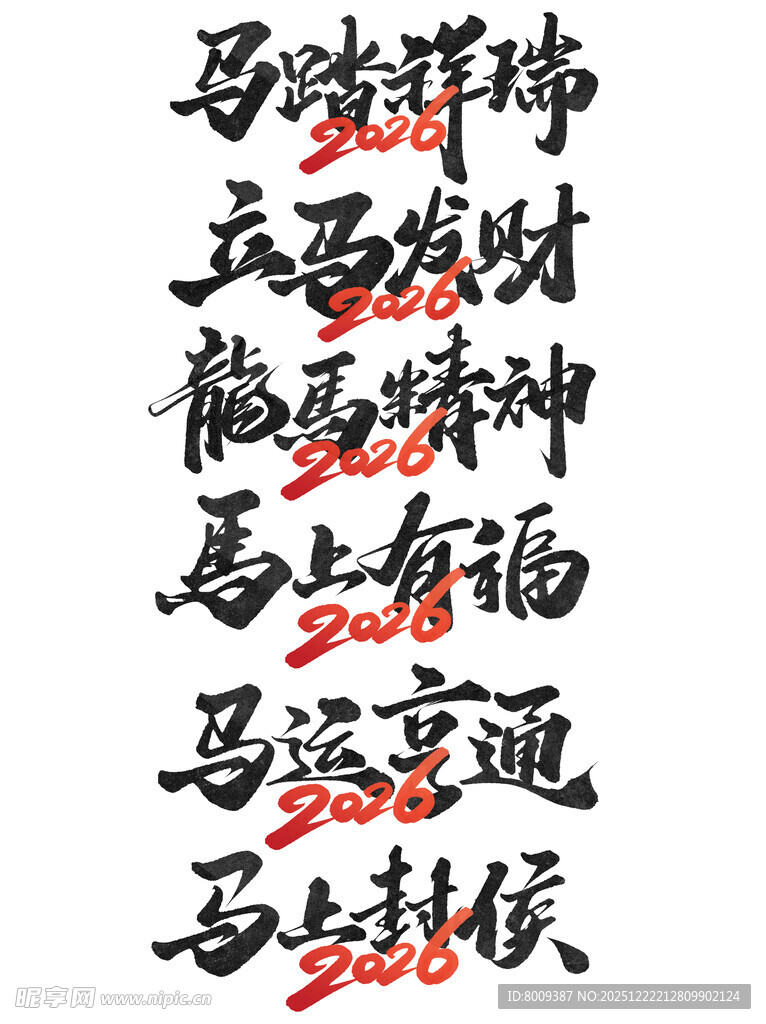 马踏祥瑞
2026
立马发财
2026
龍馬精神
2026
馬上有福
2026
马运亨通
2026
马上封侯
2026
昵享网 www.nipic.cn
ID:8009387 NO:20251222212809902124